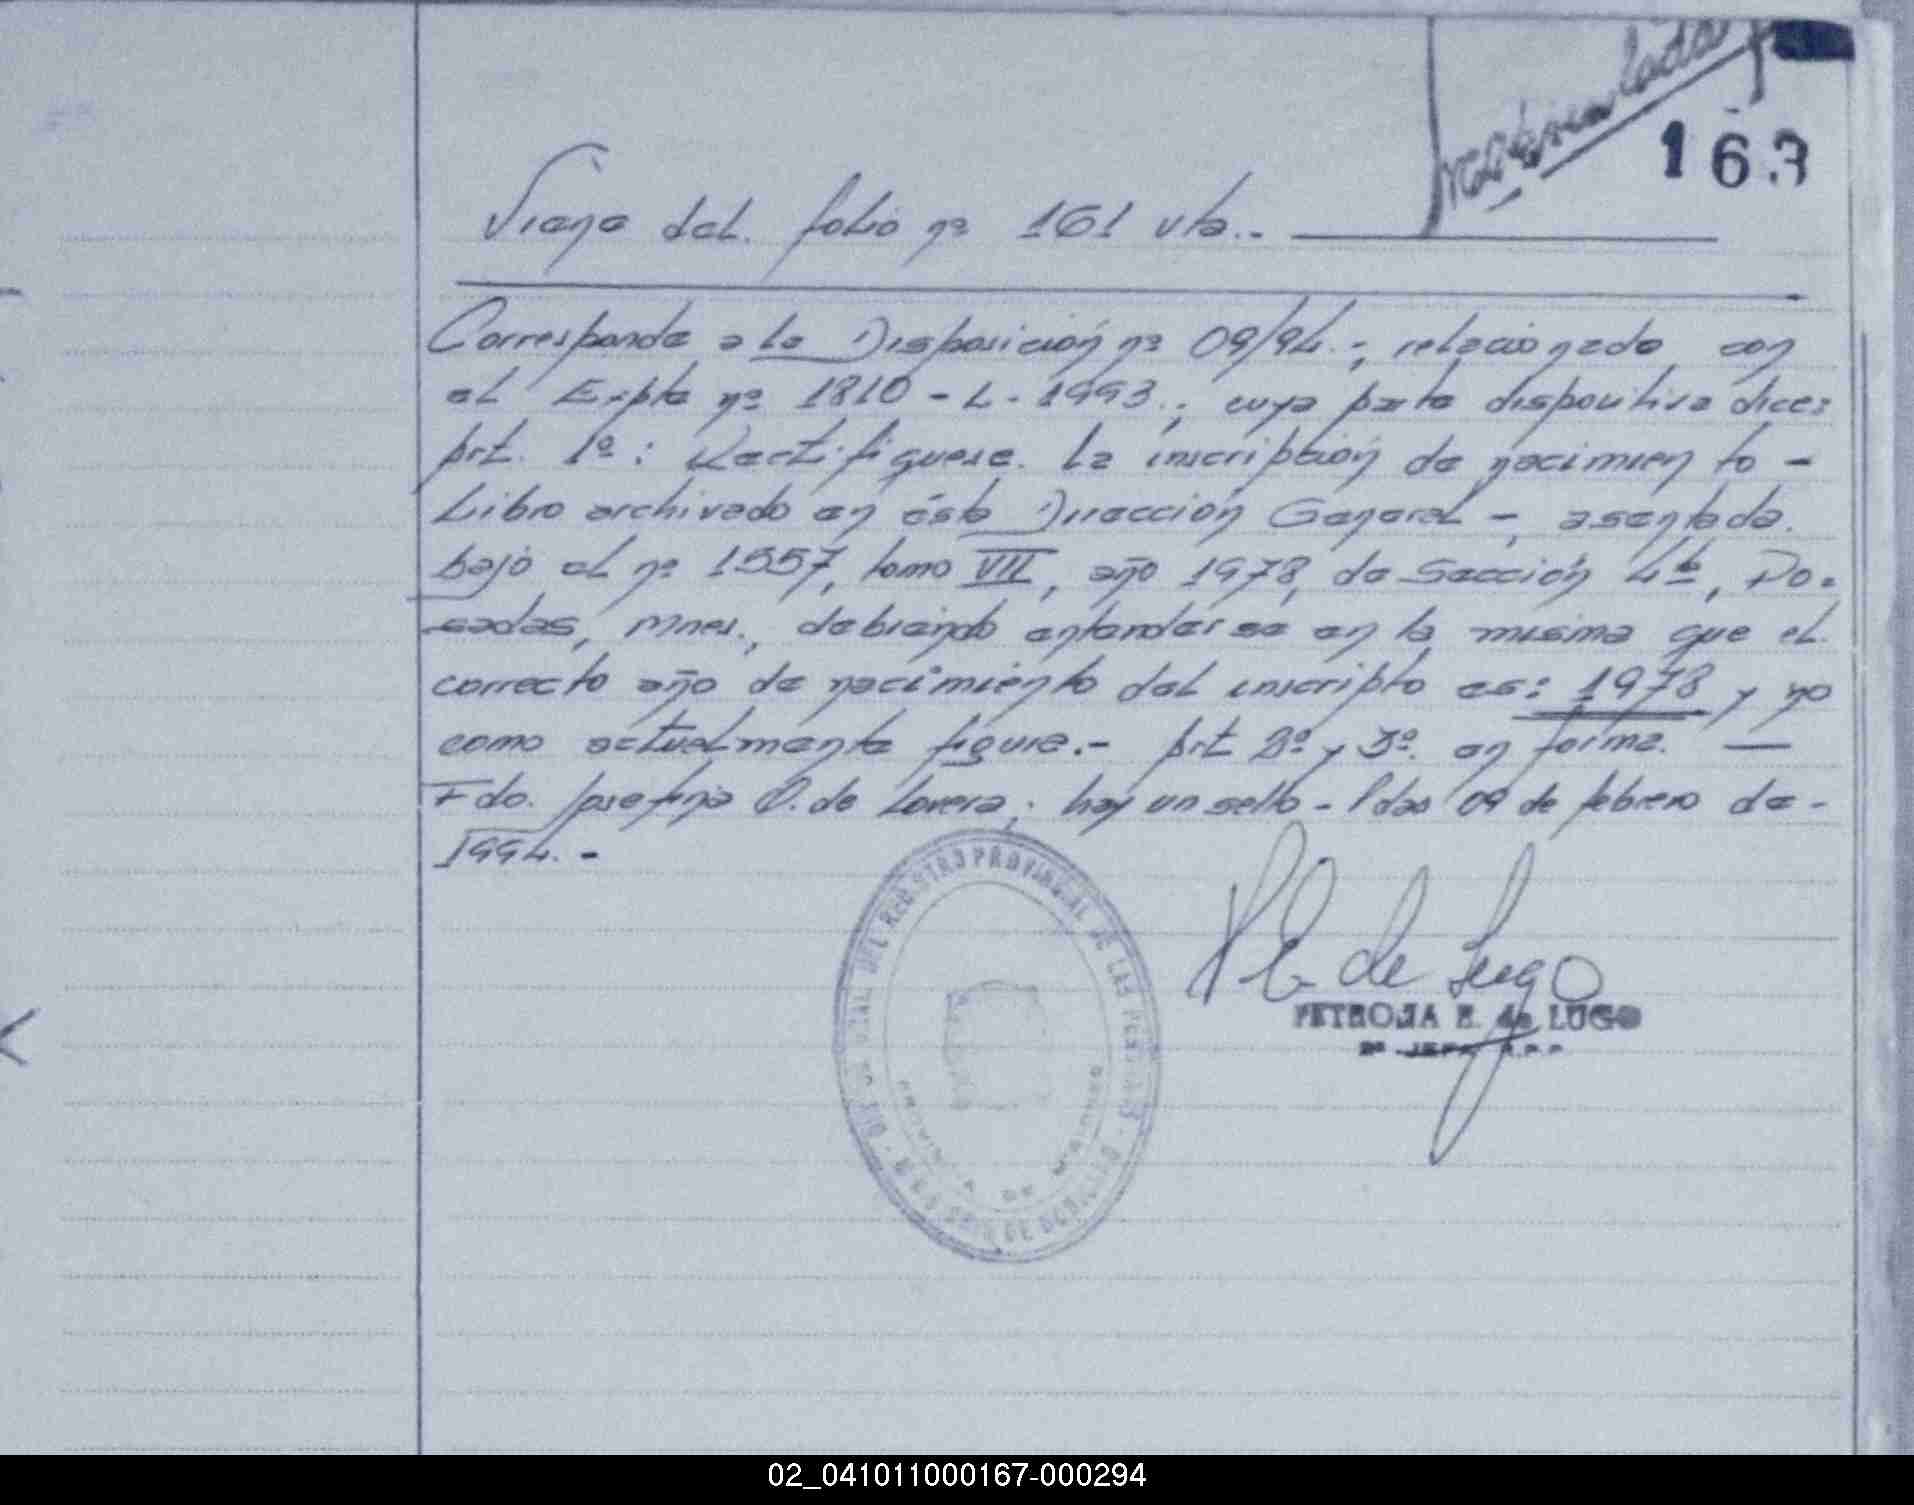 163
Viene del. folio nº 161 vta.-
Corresponde a la Disposición nº 09/94.-, relacionado con
el Expte nº 1810-L-1993., cuya parte dispositiva dice:
Art. 1º: Rectifiquese. la inscripción de nacimiento -
Libro archivado en ésta Dirección General -, asentada.
bajo el nº 1557, tomo VII, año 1978, de Sección 4ª, Po-
sadas, Mnes., debiendo entenderse en la misma que el
correcto año de nacimiento del inscripto es: 1978 y no
como actualmente figura.- Art 2º y 3º. en forma. —
Fdo. Josefina O. de Lovera; hay un sello - Pdas 09 de febrero de-
1994.-
DEL REGISTRO PROVINCIAL DE LAS PERSONAS
PROVINCIA DE MISIONES
MINISTERIO DE GOBIERNO
P E. de Lugo
PETRONA E. de LUGO
2º JEFE R.P.P.
02_041011000167-000294